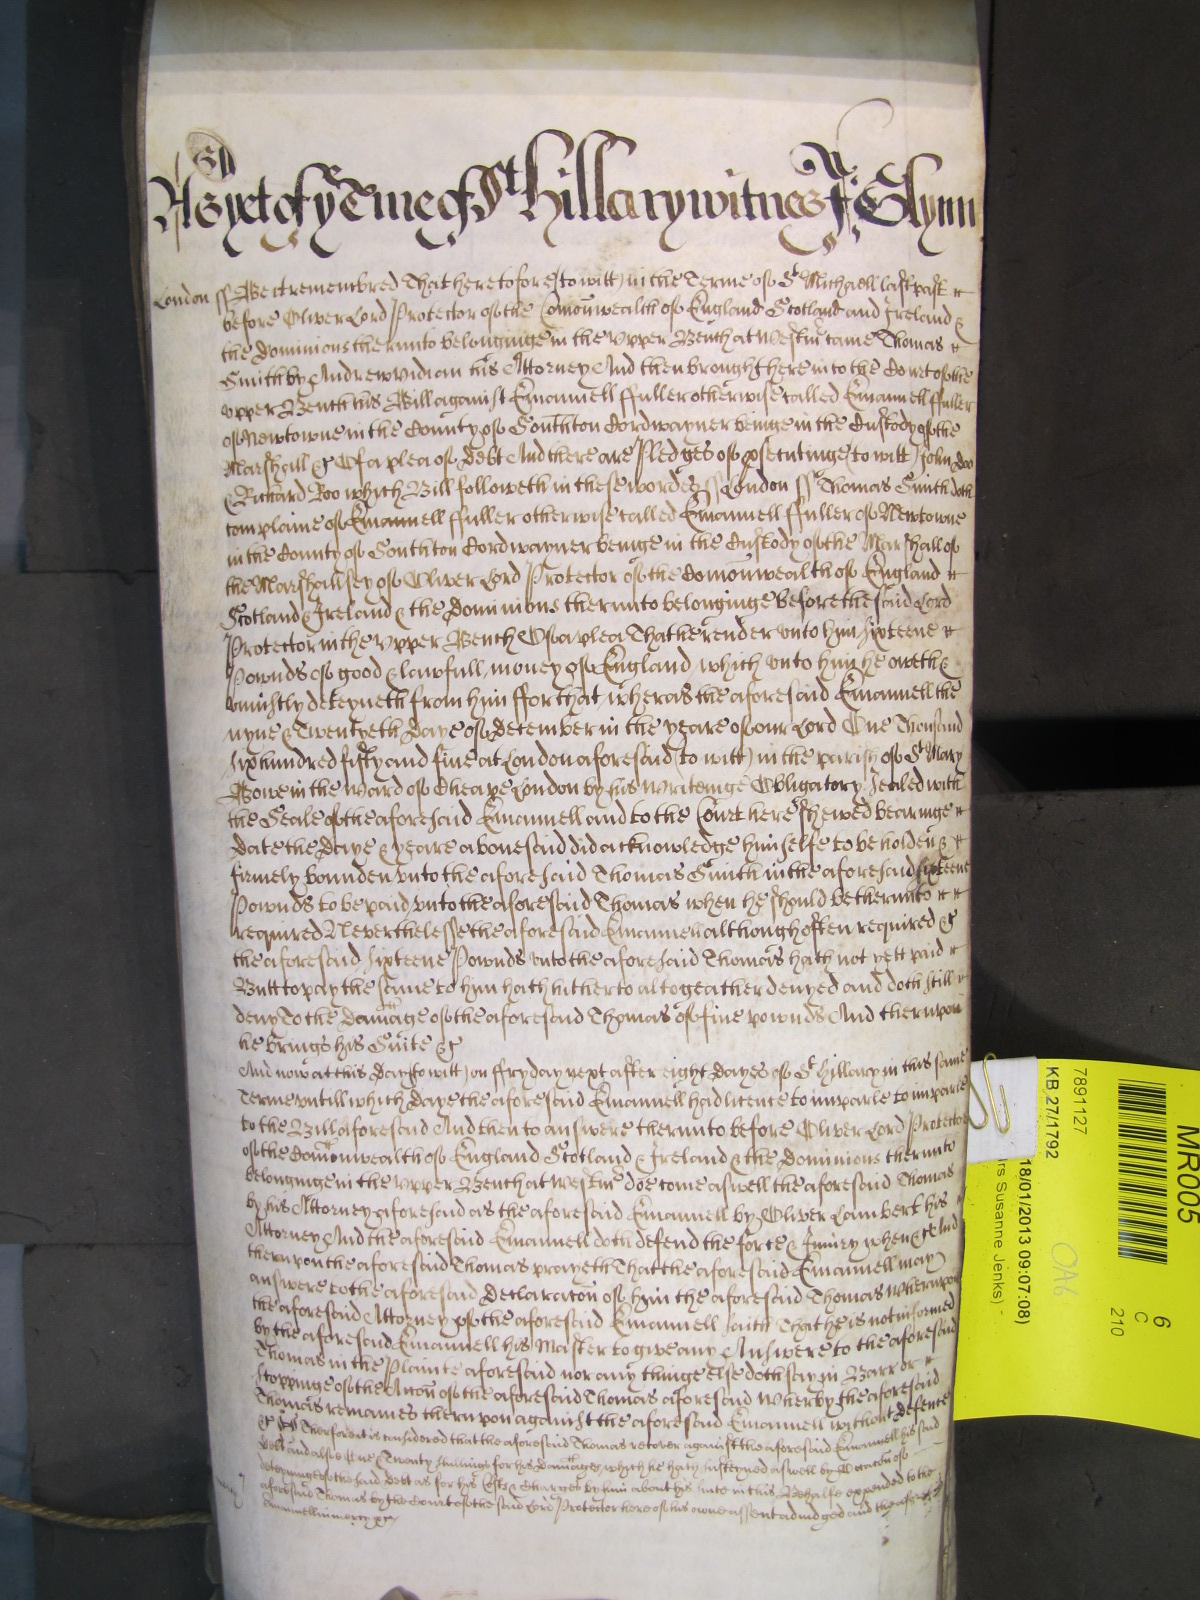 As yet of ye Tme of St Hillary witnes J: Glynn
London ss Be it remembred That heretofore (to witt) in the Terme of St Michaell last past
before Oliver Lord Protector of the Comonwealth of England Scotland and Ireland &
the Dominions therunto belonginge in the Upper Bench at Westmr came Thomas
Smith by Andrew Vidian his Attorney And then brought here into the Court of the
upper Bench his Bill against Emannell ffuller otherwise called Emannell ffuller
of Newtowne in the County of Southton Cordwayner beinge in the Custody of the
Marshall &c Of a plea of Debt And there are Pledges of psecutinge (to witt) John Doo
& Richard Roo which Bill followeth in these wordes ss London ss Thomas Smith doth
complaine of Emannell ffuller otherwise called Emannell ffuller of Newtowne
in the County of Southton Cordwayner beinge in the Custody of the Marshall of
the Marshallsey of Oliver Lord Protector of the Comonwealth of England
Scotland & Ireland & the Dominions therunto belonginge before the said Lord
Protector in the Upper Bench Of a plea That he render unto him sixteene
Pownds of good & lawfull money of England which unto him he oweth &
uniustly deteyneth from him ffor that wheras the aforesaid Emannell the
nyne & Twentyeth Daye of December in the yeare of our Lord One Thousand
six hundred fifty and five at London aforesaid (to witt) in the parish of St Mary
Bowe in the Ward of Cheape London by his Writeinge Obligatory Sealed with
the Seale of the aforesaid Emannell and to the Court here shewed bearinge
date the Daye & yeare abovesaid did acknowledge himselfe to be holden &
firmely bounden unto the aforesaid Thomas Smith in the aforesaid sixteene
Pownds to be paid unto the aforesaid Thomas when he should be therunto
required Neverthelesse the aforesaid Emannell although often required &c
the aforesaid sixteene Pownds unto the aforesaid Thomas hath not yett paid
Butt to pay the same to him hath hitherto altogeather denyed and doth still
deny To the Damage of the aforesaid Thomas of five pownds And therupon
he brings his Suite &c
And now at this day (to witt) on ffryday next after eight Dayes of St Hillary in this same
Terme untill which Daye the aforesaid Emannell had licence to imparle to imparle
to the Bill aforesaid And then to answere therunto before Oliver Lord Protector
of the Comonwealth of England Scotland & Ireland & the Dominions therunto
belonginge in the Upper Bench at Westmr doe come aswell the aforesaid Thomas
by his Attorney aforesaid as the aforesaid Emannell by Oliver Lambert his
Attorney And the aforesaid Emannell doth defend the force & Iniury when &c And
therupon the aforesaid Thomas prayeth That the aforesaid Emannell may
answere to the aforesaid Declaracon of him the aforesaid Thomas Wherupon
the aforesaid Attorney of the aforesaid Emannell saith That he is not informed
by the aforesaid Emannell his Master to give any Answere to the aforesaid
Thomas in the Plainte aforesaid nor any thinge else doth say in Barr or
stoppinge of the Accon of the aforesaid Thomas aforesaid Wherby the aforesaid
Thomas remaines therupon against the aforesaid Emannell without defence
&c Therfore it is considered that the aforesaid Thomas recover against the aforesaid Emannell his said
Debt and alsoe Twenty shillings for his Damages which he hath susteyned aswell by Occacon of
deteyninge of the said Debt as for his Costs & Charges by him about his suite in this Behalfe expended to the
aforesaid Thomas by the Court of the said Lord Protector here of his owne assent adiudged and the aforesaid
Emannell in mercy &c
7891127
KB 27/1792
18/01/2013 09:07:08)
rs Susanne Jenks)
MR005
6
C
210